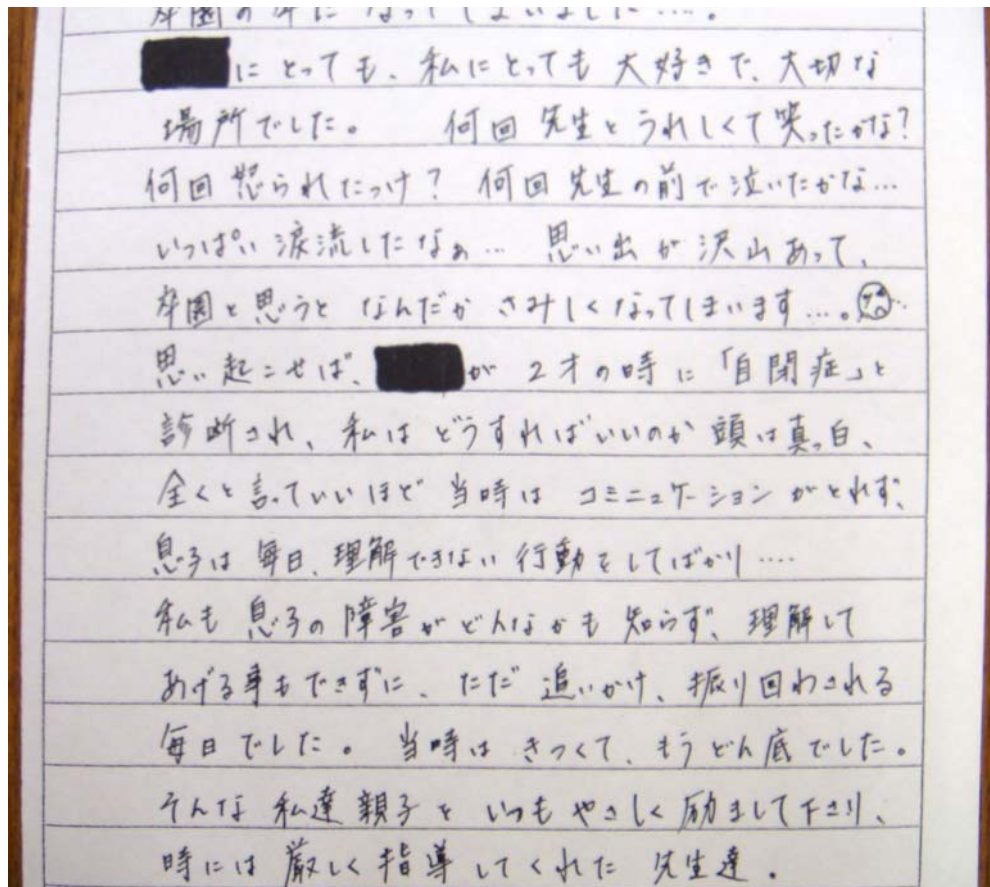 卒園の年になってしまいました….
にとっても、私にとっても大好きで、大切な
場所でした。 何回先生とうれしくて笑ったかな?
何回怒られたっけ? 何回先生の前で泣いたかな…
いっぱい涙流したなぁ… 思い出が沢山あって、
卒園と思うとなんだかさみしくなってしまいます…。
思い起こせば、 が2才の時に「自閉症」と
診断され、私はどうすればいいのか頭は真っ白、
全くと言っていいほど当時はコミニュケーションがとれず、
息子は毎日、理解できない行動をしてばかり….
私も息子の障害がどんなかも知らず、理解して
あげる事もできずに、ただ追いかけ、振り回わされる
毎日でした。当時はきつくて、もうどん底でした。
そんな私達親子をいつもやさしく励まして下さり、
時には厳しく指導してくれた先生達.